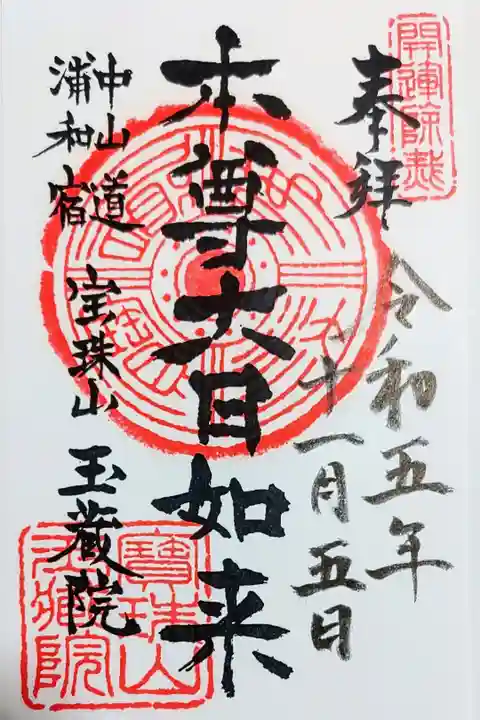 開運除災
奉拝
令和五年
十一月五日
本尊大日如来
中山道
浦和宿
宝珠山 玉蔵院
寶珠山
玉藏院